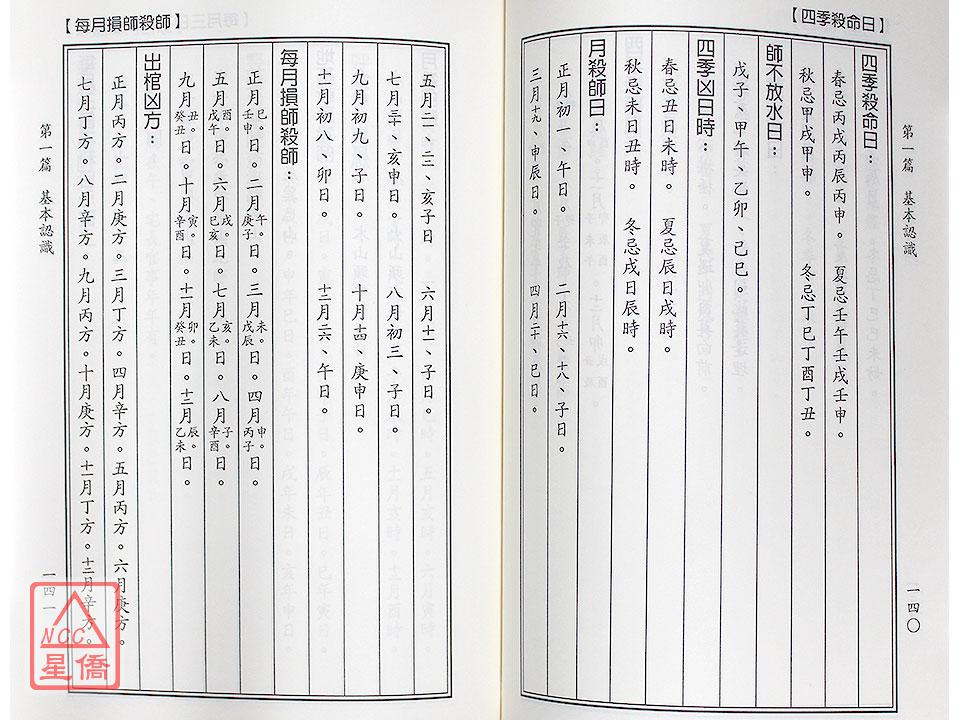 【四季殺命日】
四季殺命日：
春忌丙戌丙辰丙申。　夏忌壬午壬戌壬申。
秋忌甲戌甲申。　冬忌丁巳丁酉丁丑。
師不放水日：
戊子、甲午、乙卯、己巳。
四季凶日時：
春忌丑日未時。　夏忌辰日戌時。
秋忌未日丑時。　冬忌戌日辰時。
月殺師日：
正月初一、午日。　二月十六、十八、子日。
三月十九、申辰日。　四月二十、巳日。
第一篇　基本認識
一四〇
【每月損師殺師】
五月二一、二二、亥子日　六月十一、子日。
七月三十、亥申日。　八月初三、子日。
九月初九、子日。　十月十四、庚申日
十一月初八、卯日。　十二月二六、午日。
每月損師殺師：
正月巳。壬申日。二月午。庚子日。三月未。戊辰日。四月申。丙子日。
五月酉。戊午日。六月戌。巳亥日。七月亥。乙未日。八月子。辛酉日。
九月丑。癸丑日。十月寅。辛酉日。十一月卯。癸丑日。十二月辰。乙未日。
出棺凶方：
正月丙方。二月庚方。三月丁方。四月辛方。五月丙方。六月庚方。
七月丁方。八月辛方。九月丙方。十月庚方。十一月丁方。十二月辛方。
第一篇　基本認識
一四一
NCC
星僑